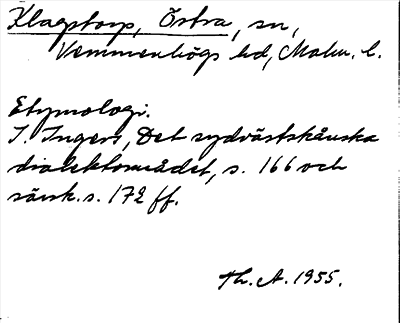 Klagstorp, Östra, sn,
Vemmenhögs hd, Malm. l.
Etymologi.
I. Ingers, Det sydvästskånska
dialektområdet, s. 166 och
särsk. s. 172 ff.
Th. A. 1955.